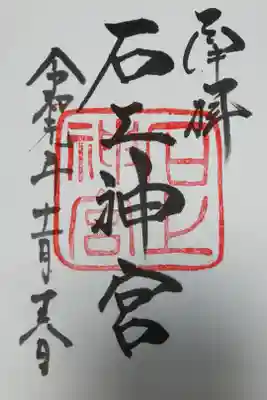 奉拝
石上神宮
石上神宮
令和五年十一月十八日